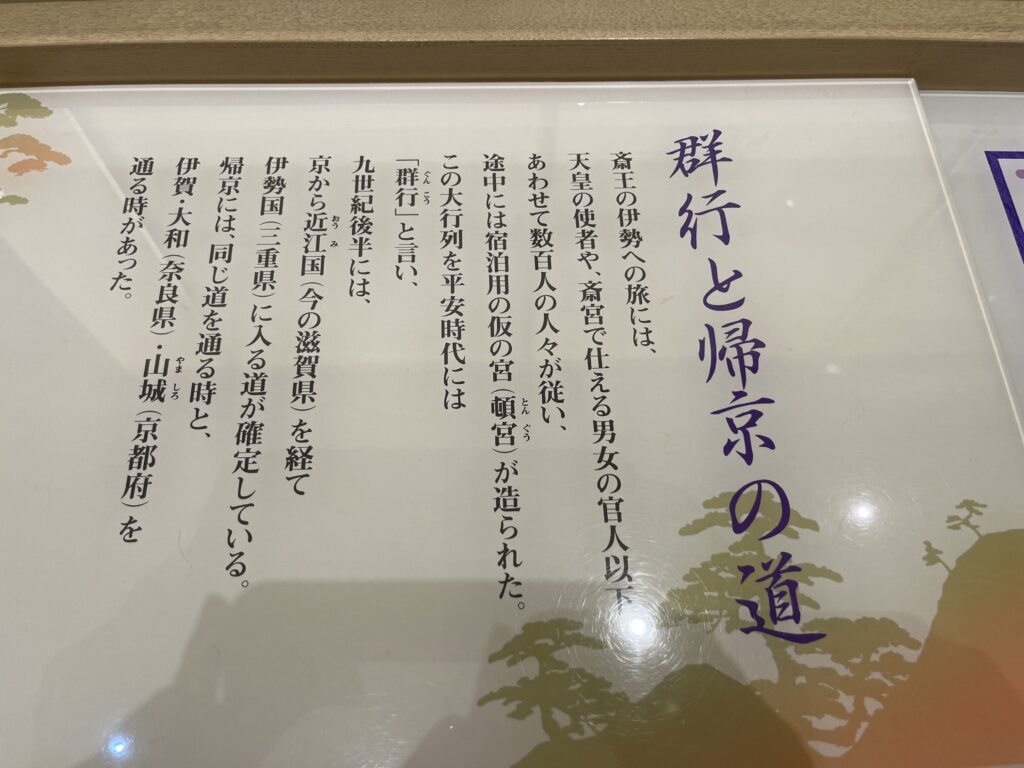 群行と帰京の道
斎王の伊勢への旅には、
天皇の使者や、斎宮で仕える男女の官人以下
あわせて数百人の人々が従い、
途中には宿泊用の仮の宮（頓宮）が造られた。
とん ぐう
この大行列を平安時代には
「群行」と言い、
ぐん こう
九世紀後半には、
京から近江国（今の滋賀県）を経て
おう み
伊勢国（三重県）に入る道が確定している。
帰京には、同じ道を通る時と、
伊賀・大和（奈良県）・山城（京都府）を
やま しろ
通る時があった。